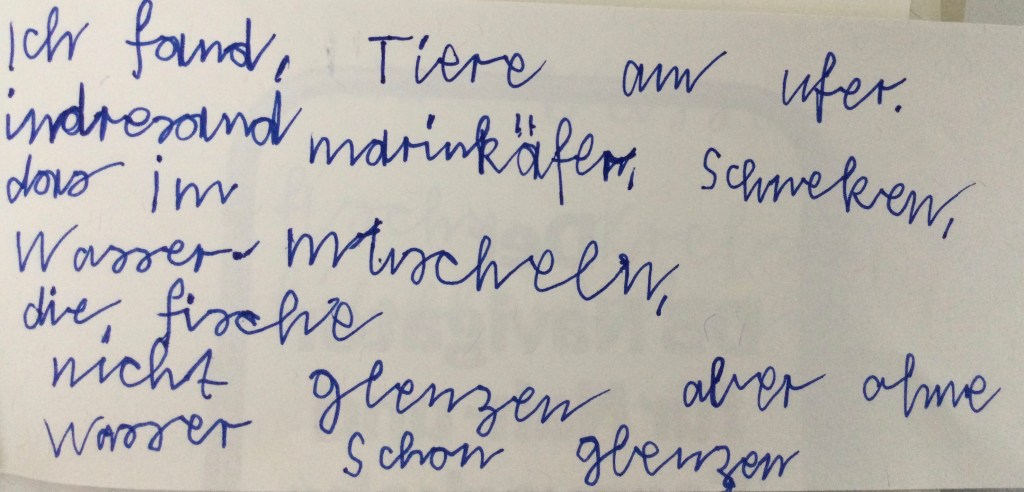 Ich fand, Tiere am ufer.
indresand marinkäfer, Schneken,
das im
Wasser. müscheln,
die, fische
nicht glenzen aber ohne
Wasser schon glenzen